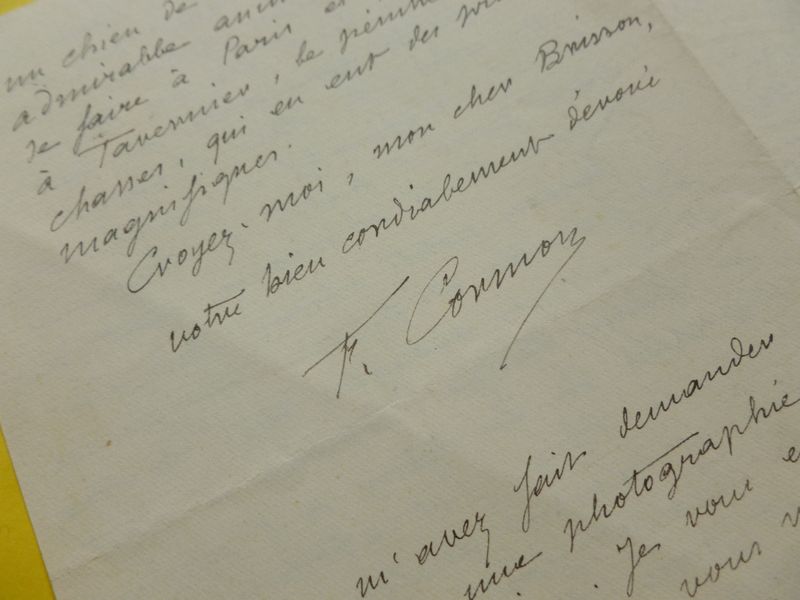 un chien de
admirable anim
se faire à Paris et
à Tavernier, le peintre
chasses, qui en ont des
magnifiques.
Croyez-moi, mon cher Brisson,
votre bien cordialement dévoué
F. Cormon
m'avez fait demander
une photographie
Je vous e
vous v